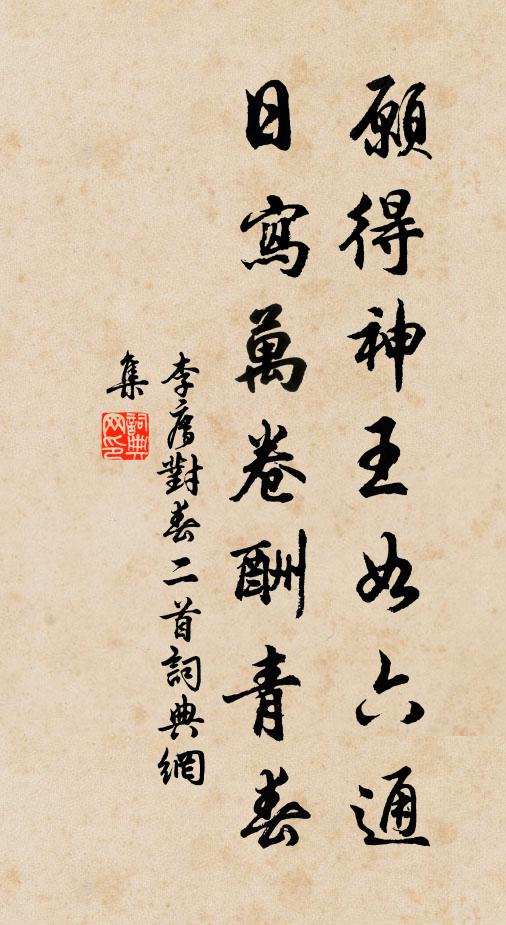 願得神王如六通
日寫萬卷酬青春
李廌對春二首詞典網
集
詞典
网印